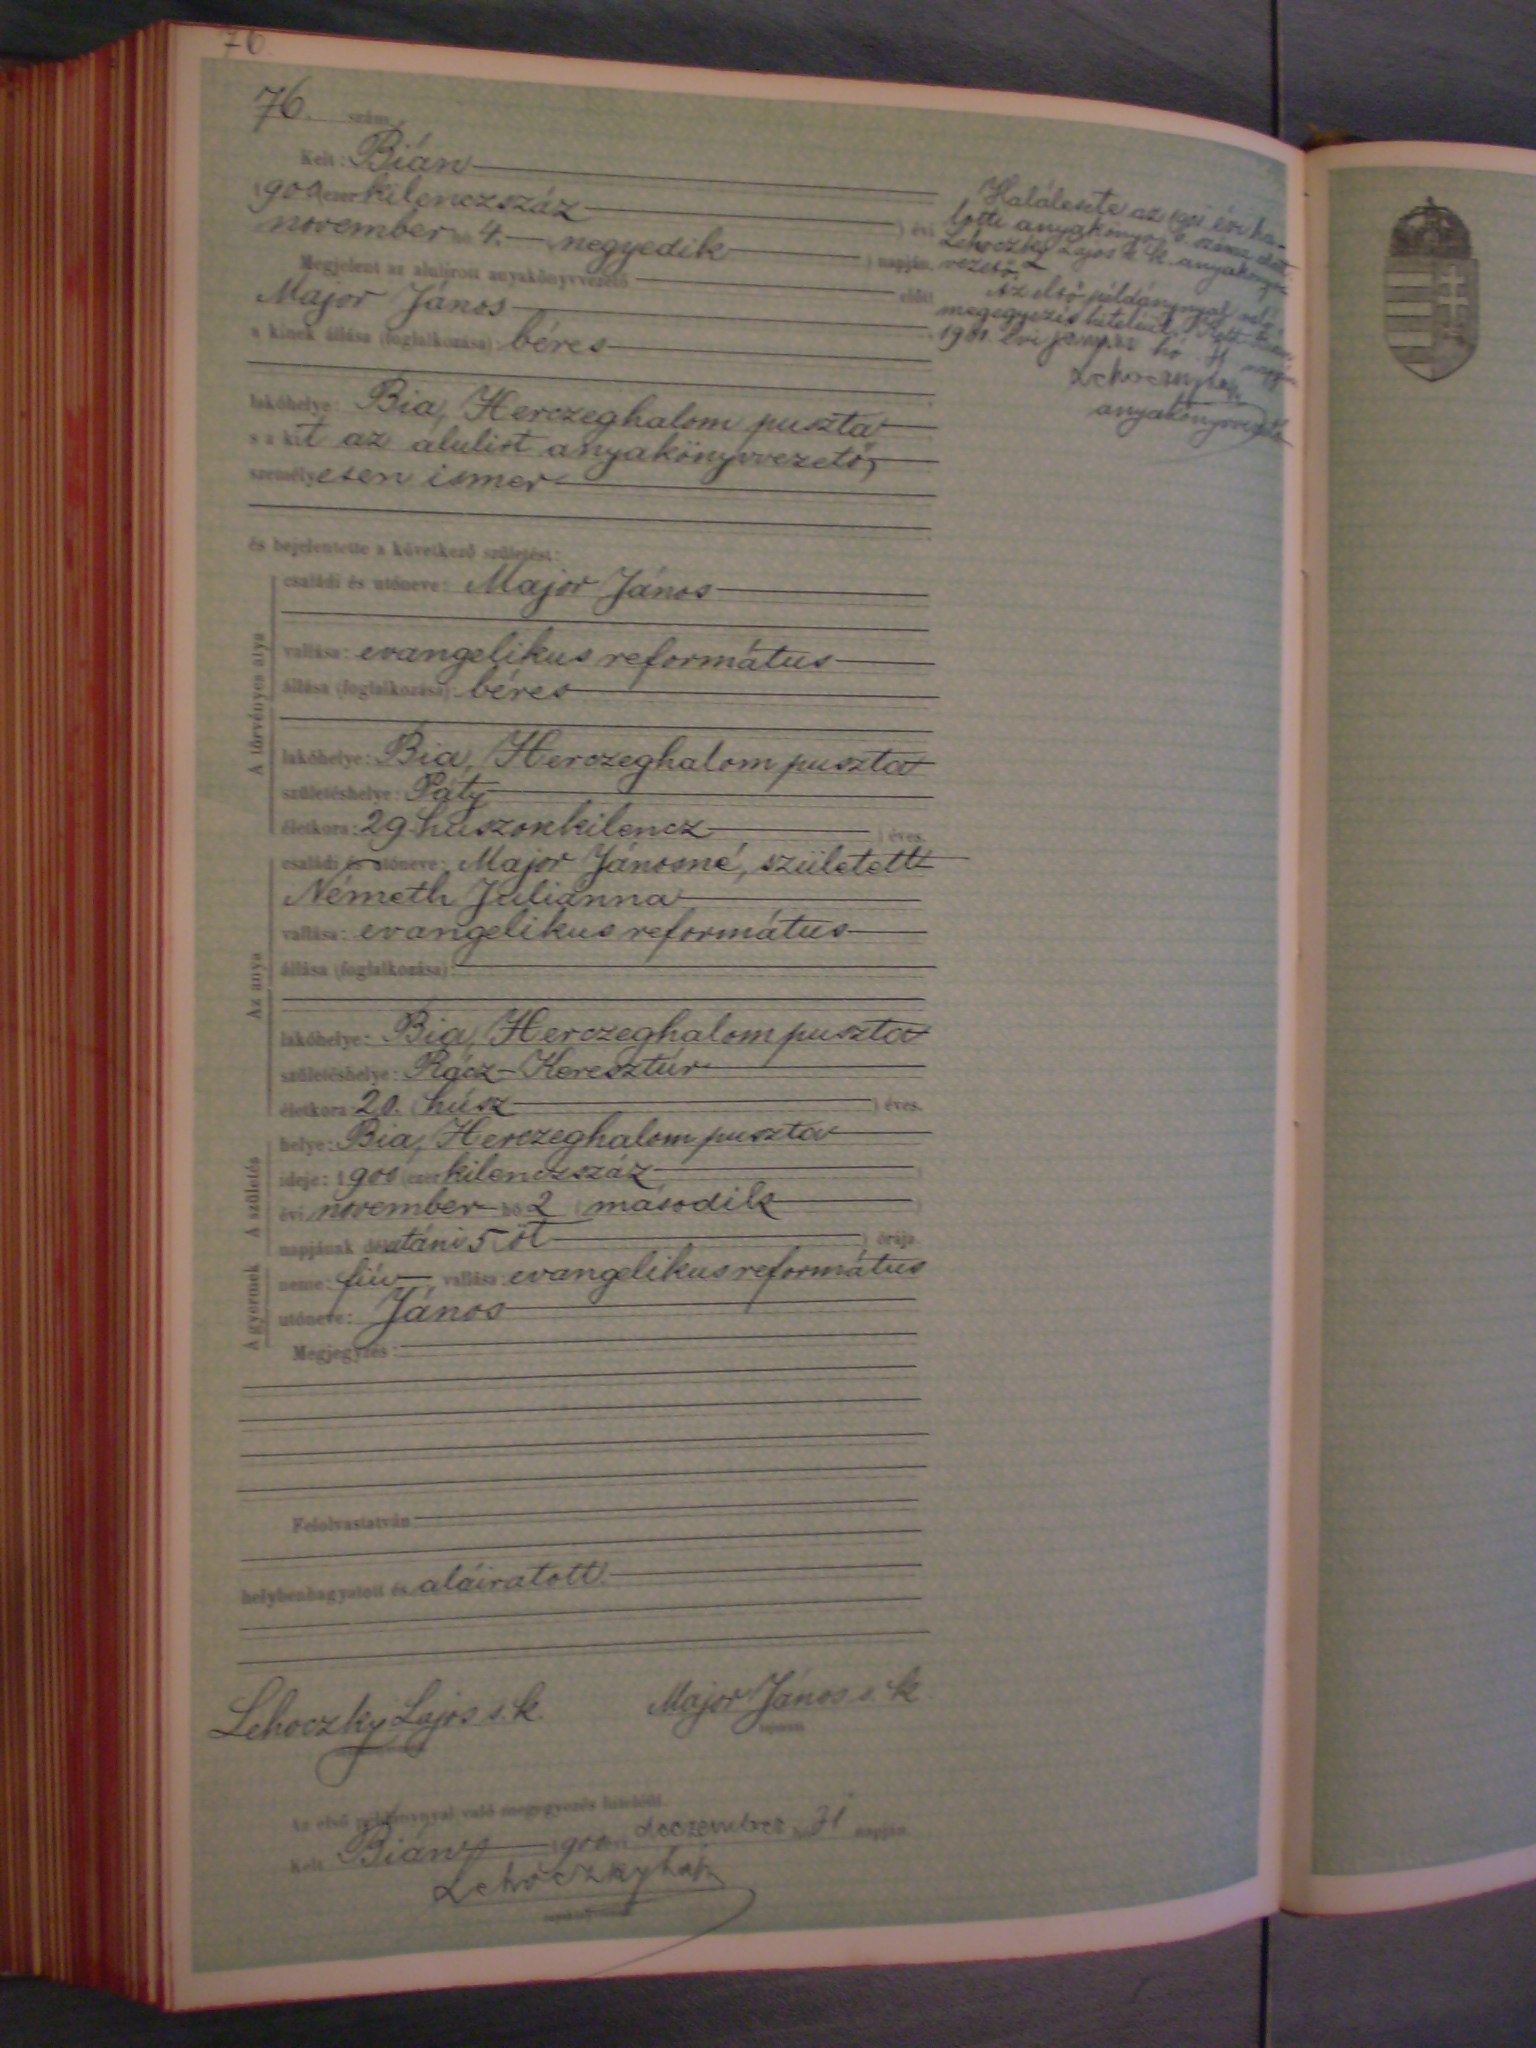 76.
76. szám.
Kelt: Bián
1900 (ezer kilenczszáz ) évi
november hó 4. (negyedik ) napján.
Megjelent az alulirott anyakönyvvezető előtt
Major János
a kinek állása (foglalkozása): béres
lakóhelye: Bia, Herczeghalom puszta
s a kit az alulirt anyakönyvvezető,
személyesen ismer
és bejelentette a következő születést:
A törvényes atya
családi és utóneve: Major János
vallása: evangelikus református
állása (foglalkozása): béres
lakóhelye: Bia, Herczeghalom puszta
születéshelye: Páty
életkora: 29 (huszonkilencz ) éves.
Az anya
családi és utóneve: Major Jánosné, született
Németh Julianna
vallása: evangelikus református
állása (foglalkozása):
lakóhelye: Bia, Herczeghalom puszta
születéshelye: Rácz-Keresztúr
életkora: 20. (húsz ) éves.
A születés
helye: Bia, Herczeghalom puszta
ideje: 1900 (ezer kilenczszáz )
évi november hó 2 (második )
napjának délutáni 5 (öt ) órája.
A gyermek
neme: fiú vallása: evangelikus református
utóneve: János
Megjegyzés:
Felolvastatván
helybenhagyatott és aláiratott.
Lehoczky Lajos s. k. Major János s. k.
Az első példánynyal való megegyezés hiteléül.
Kelt Bián 1900 évi deczember hó 31 napján
Lehoczky Lajos
Halálesete az 1901 évi ha-
lotti anyakönyv 6 száma alatt.
Lehoczky Lajos s. k. anyakönyv-
vezető.
Az első példánynyal való
megegyezés hiteléül. Kelt Bián,
1901. évi január hó napján
Lehoczky Lajos
anyakönyvvezető